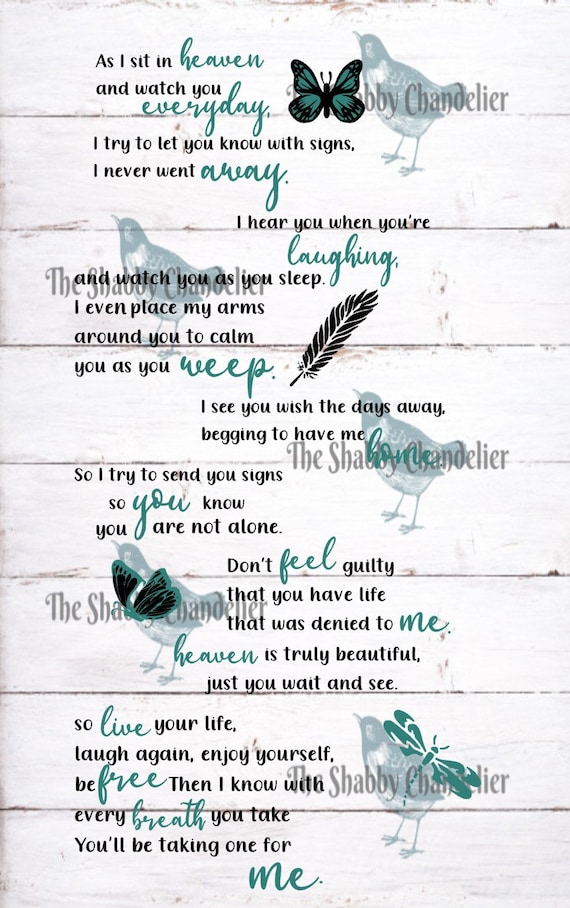 As I sit in heaven
and watch you
everyday,
The Shabby Chandelier
I try to let you know with signs,
I never went away.
I hear you when you're
laughing,
and watch you as you sleep.
The Shabby Chandelier
I even place my arms
around you to calm
you as you weep.
I see you wish the days away,
begging to have me home.
The Shabby Chandelier
So I try to send you signs
so you know
you are not alone.
Don't feel guilty
that you have life
The Shabby Chandelier
that was denied to me.
heaven is truly beautiful,
just you wait and see.
so live your life,
laugh again, enjoy yourself,
be free Then I know with
The Shabby Chandelier
every breath you take
You'll be taking one for
me.